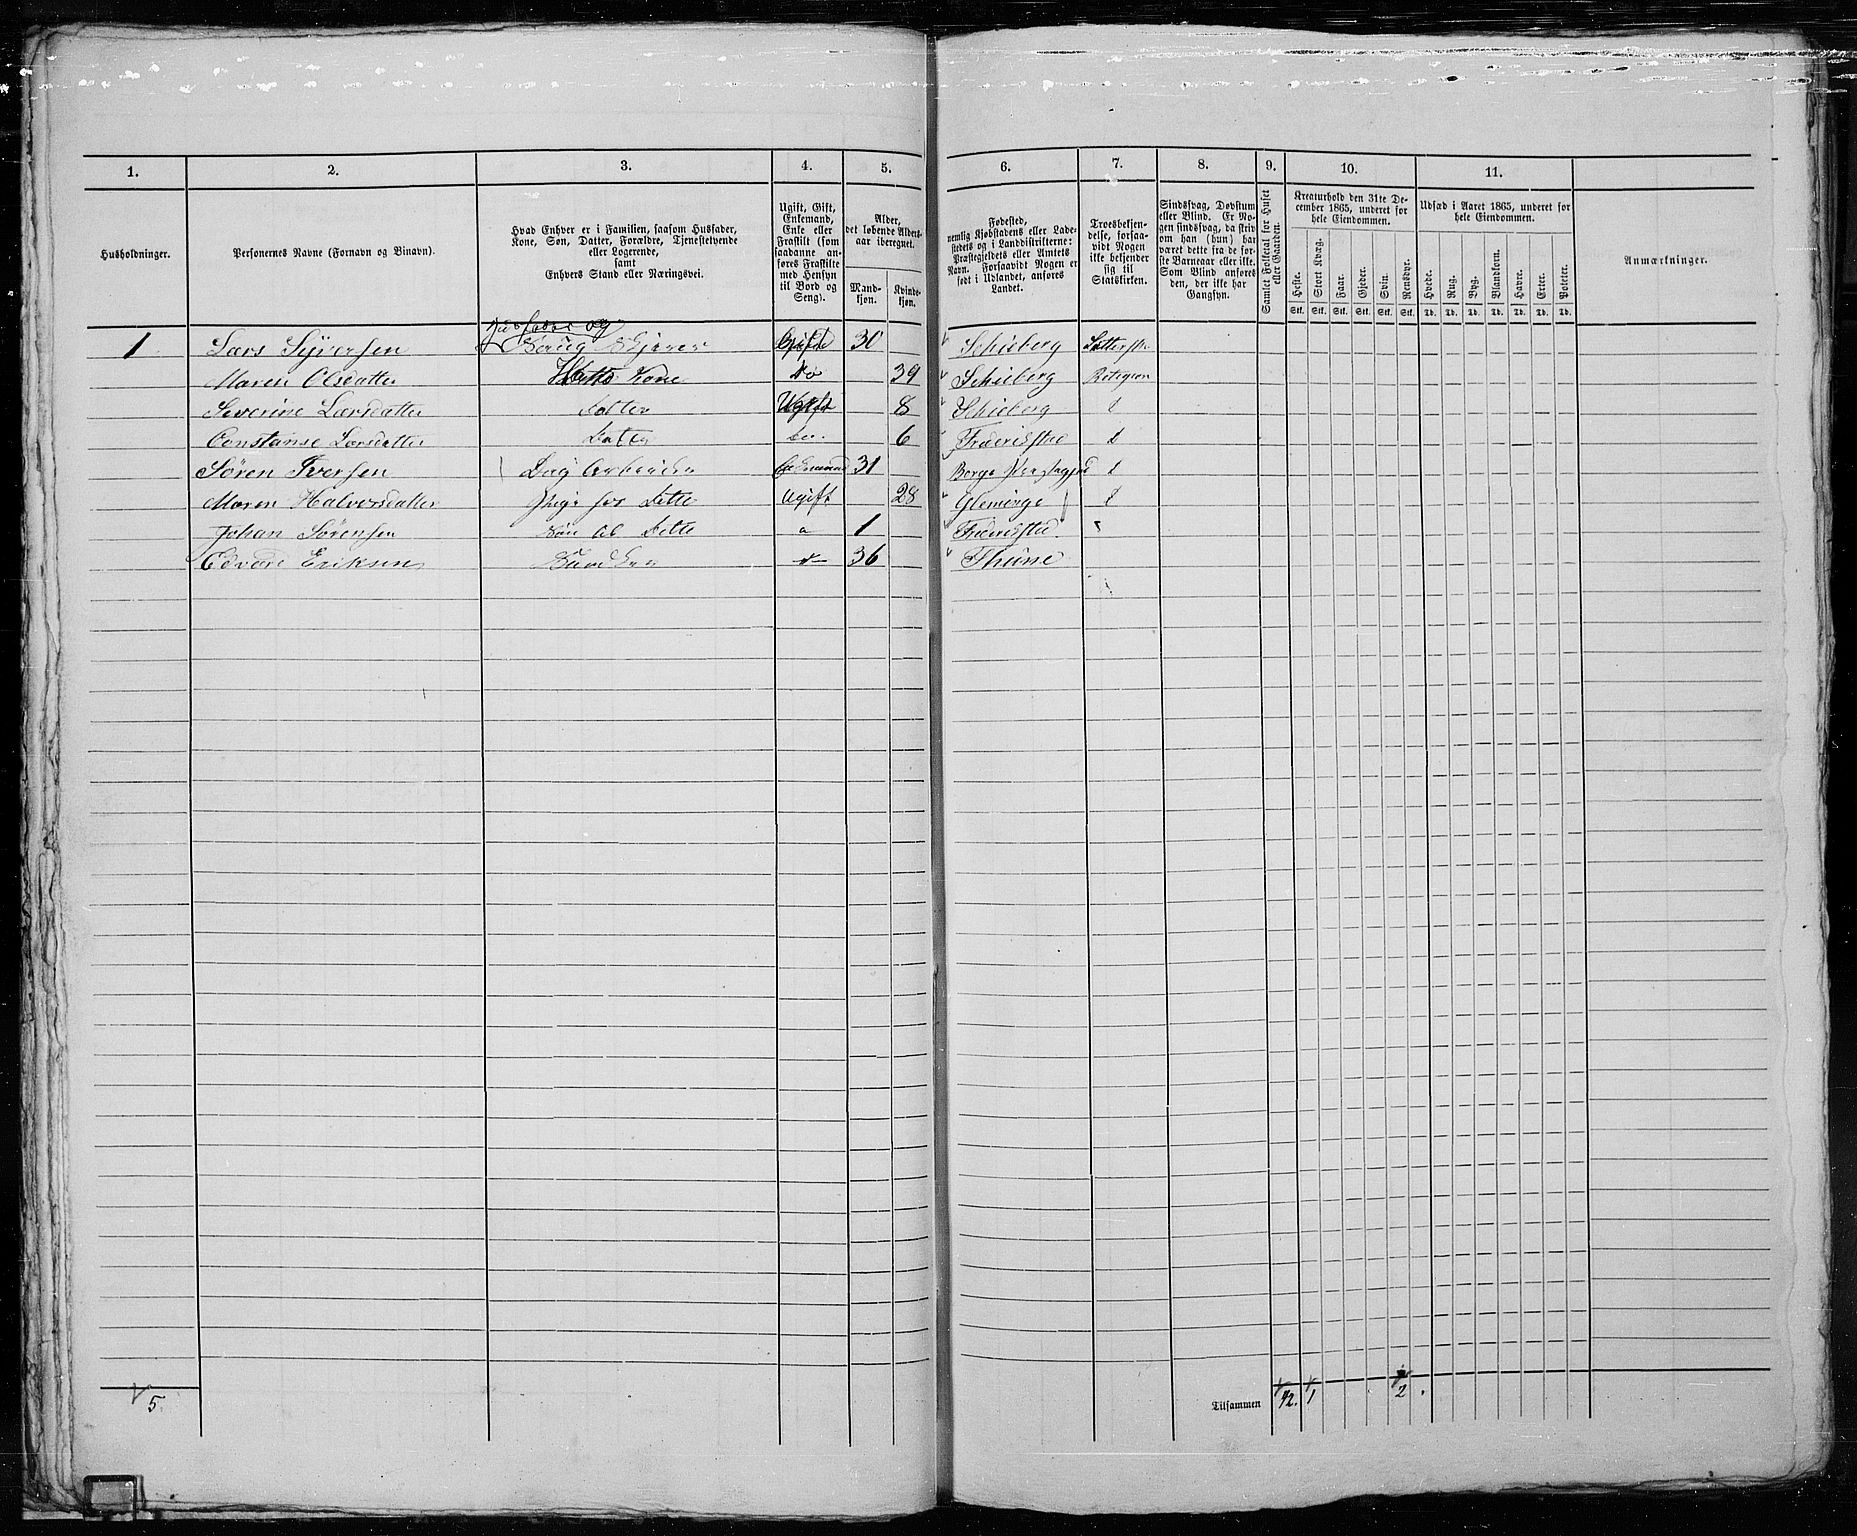 1. 2. 3. 4. 5. 6. 7. 8. 9. 10. 11.
Husholdninger.
Personernes Navne (Fornavn og Binavn).
Hvad Enhver er i Familien, saasom Husfader,
Kone, Søn, Datter, Forældre, Tjenestetyende
eller Logerende,
samt
Enhvers Stand eller Næringsvei.
Ugift, Gift,
Enkemand,
Enke eller
Fraskilt (som
saadanne an-
føres Fraskilte
med Hensyn
til Bord og
Seng).
Alder,
det løbende Alders-
aar iberegnet.
Mand-
kjøn.
Kvinde-
kjøn.
Fødested,
nemlig Kjøbstadens eller Lade-
stedets og i Landdistrikterne:
Præstegjeldets eller Amtets
Navn. Forsaavidt Nogen er
født i Udlandet, anføres
Landet.
Troesbekjen-
delse, forsaa-
vidt Nogen
ikke bekjender
sig til
Statskirken.
Sindssvag, Døvstum
eller Blind. Er No-
gen sindssvag, da skriv
om han (hun) har
været dette fra de før-
ste Barneaar eller ikke.
Som Blind anføres
den, der ikke har
Gangsyn.
Samlet Folketal for Huset
eller Gaarden.
Kreaturhold den 31te De-
cember 1865, underet for
hele Eiendommen.
Heste. Stort Kvæg. Faar. Gjeder. Svin. Rensdyr.
Stk. Stk. Stk. Stk. Stk. Stk.
Udsæd i Aaret 1865, underet for
hele Eiendommen.
Hvede. Rug. Byg. Blandkorn. Havre. Erter. Poteter.
Td. Td. Td. Td. Td. Td. Td.
Anmærkninger.
Husfader og
1 Lars Syversen Gift 30 Schieberg
Maren Olsdatter Kone Do 39 Schieberg
Severine Larsdatter Datter Ugift 8 Schieberg
Constanse Larsdatter Datter Do. 6 Fredrikstad
Søren Iversen Dag Arbeider Enkemand 31 Borge
Maren Halvorsdatter Pige hos Dette Ugift 28 Gleminge
Johan Sørensen Søn til Dette 1 Fredrikstad
Edvard Eriksen 36 Thune
5. Tilsammen 42. 1 2